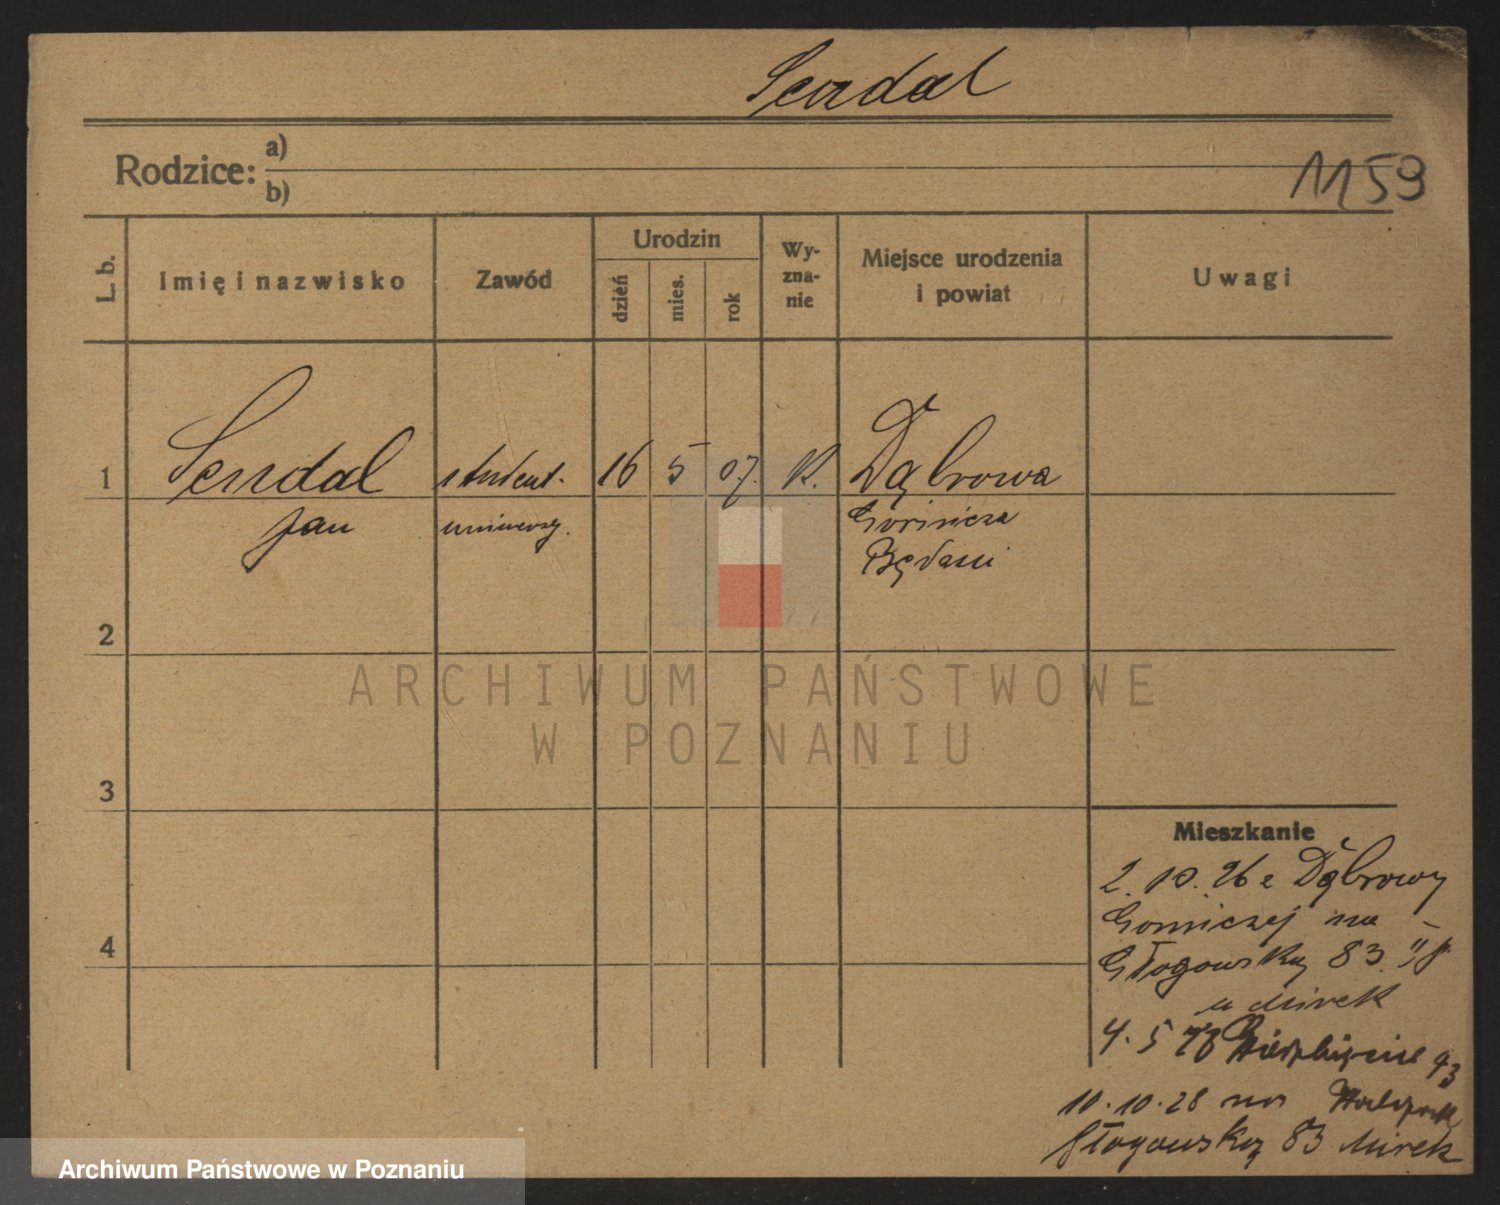 Sendal
Rodzice: a)
b)
1159
L. b.
Imię i nazwisko
Zawód
Urodzin
dzień
mies.
rok
Wy-
zna-
nie
Miejsce urodzenia
i powiat
Uwagi
1
Sendal student. 16 5 07. K. Dąbrowa
Jan uniwersy. Górnicza
Będzin
2
3
4
Mieszkanie
2. 10. 26 z Dąbrowy
Gorniczej na
Głogowską 83. II p.
u Mirek
4. 5 28 Wierzbięcice 43
10.10.28 na
Głogowską 83 Mirek
ARCHIWUM PAŃSTWOWE
W POZNANIU
Archiwum Państwowe w Poznaniu